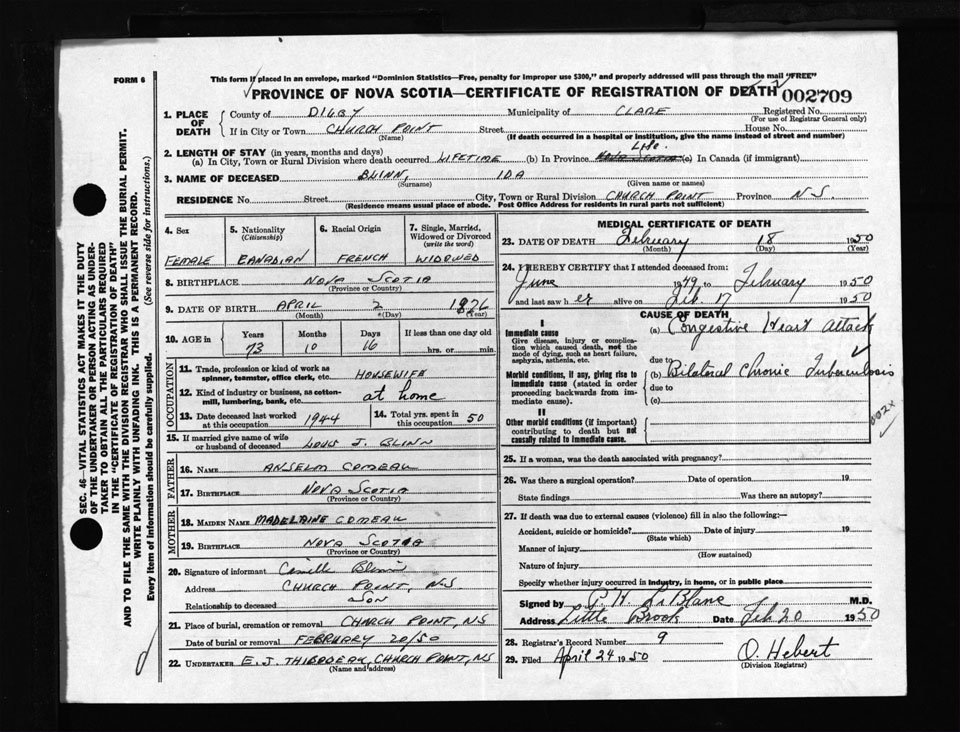 FORM 6
This form if placed in an envelope, marked "Dominion Statistics—Free, penalty for improper use $300," and properly addressed will pass through the mail "FREE"
PROVINCE OF NOVA SCOTIA—CERTIFICATE OF REGISTRATION OF DEATH 002709
1. PLACE OF DEATH
County of DIGBY Municipality of CLARE Registered No.
(For use of Registrar General only)
If in City or Town CHURCH POINT Street House No.
(Name) (If death occurred in a hospital or institution, give the name instead of street and number)
2. LENGTH OF STAY (in years, months and days)
(a) In City, Town or Rural Division where death occurred LIFETIME (b) In Province NOVA SCOTIA Life. (c) In Canada (if immigrant)
3. NAME OF DECEASED BLINN, IDA
(Surname) (Given name or names)
RESIDENCE No. Street City, Town or Rural Division CHURCH POINT Province N-S.
(Residence means usual place of abode. Post Office Address for residents in rural parts not sufficient)
4. Sex
FEMALE
5. Nationality
(Citizenship)
CANADIAN
6. Racial Origin
FRENCH
7. Single, Married, Widowed or Divorced
(write the word)
WIDOWED
8. BIRTHPLACE NOVA SCOTIA
(Province or Country)
9. DATE OF BIRTH APRIL 2 1876
(Month) (Day) (Year)
10. AGE in Years Months Days If less than one day old
73 10 16 hrs. or min.
OCCUPATION
11. Trade, profession or kind of work as
spinner, teamster, office clerk, etc. HOUSEWIFE
12. Kind of industry or business, as cotton-
mill, lumbering, bank, etc. at home
13. Date deceased last worked
at this occupation 1944
14. Total yrs. spent in
this occupation 50
15. If married give name of wife
or husband of deceased LOUIS J. BLINN
FATHER
16. NAME ANSELM COMEAU
17. BIRTHPLACE NOVA SCOTIA
(Province or Country)
MOTHER
18. MAIDEN NAME MADELAINE COMEAU
19. BIRTHPLACE NOVA SCOTIA
(Province or Country)
20. Signature of informant Camille Blinn
Address CHURCH POINT, N-S
Relationship to deceased SON
21. Place of burial, cremation or removal CHURCH POINT, N-S
Date of burial or removal FEBRUARY 20/50
22. UNDERTAKER E. J. THIBODEAU, CHURCH POINT, N-S
(Name and address)
MEDICAL CERTIFICATE OF DEATH
23. DATE OF DEATH February 18 1950
(Month) (Day) (Year)
24. I HEREBY CERTIFY that I attended deceased from:
June 1949 to February 1950
and last saw her alive on Feb. 17 1950
CAUSE OF DEATH
I
Immediate cause
Give disease, injury or complica-
tion which caused death, not the
mode of dying, such as heart failure,
asphyxia, asthenia, etc.
(a) Congestive Heart attack
due to
Morbid conditions, if any, giving rise to
immediate cause (stated in order
proceeding backwards from im-
mediate cause).
(b) Bilateral Chronic Tuberculosis
due to
(c)
002x
II
Other morbid conditions (if important)
contributing to death but not
causally related to immediate cause.
25. If a woman, was the death associated with pregnancy?
26. Was there a surgical operation? Date of operation 19
State findings Was there an autopsy?
27. If death was due to external causes (violence) fill in also the following:—
Accident, suicide or homicide? Date of injury 19
(State which)
Manner of injury
(How sustained)
Nature of injury
Specify whether injury occurred in industry, in home, or in public place
Signed by P. H. LeBlanc M.D.
Address Little Brook Date Feb 20 1950
28. Registrar's Record Number 9
29. Filed April 24 1950 O. Hebert
(Division Registrar)
SEC. 46—VITAL STATISTICS ACT MAKES IT THE DUTY
OF THE UNDERTAKER OR PERSON ACTING AS UNDER-
TAKER TO OBTAIN ALL THE PARTICULARS REQUIRED
IN THE "CERTIFICATE OF REGISTRATION OF DEATH"
AND TO FILE THE SAME WITH THE DIVISION REGISTRAR WHO SHALL ISSUE THE BURIAL PERMIT.
WRITE PLAINLY WITH UNFADING INK. THIS IS A PERMANENT RECORD.
Every item of information should be carefully supplied. (See reverse side for instructions.)